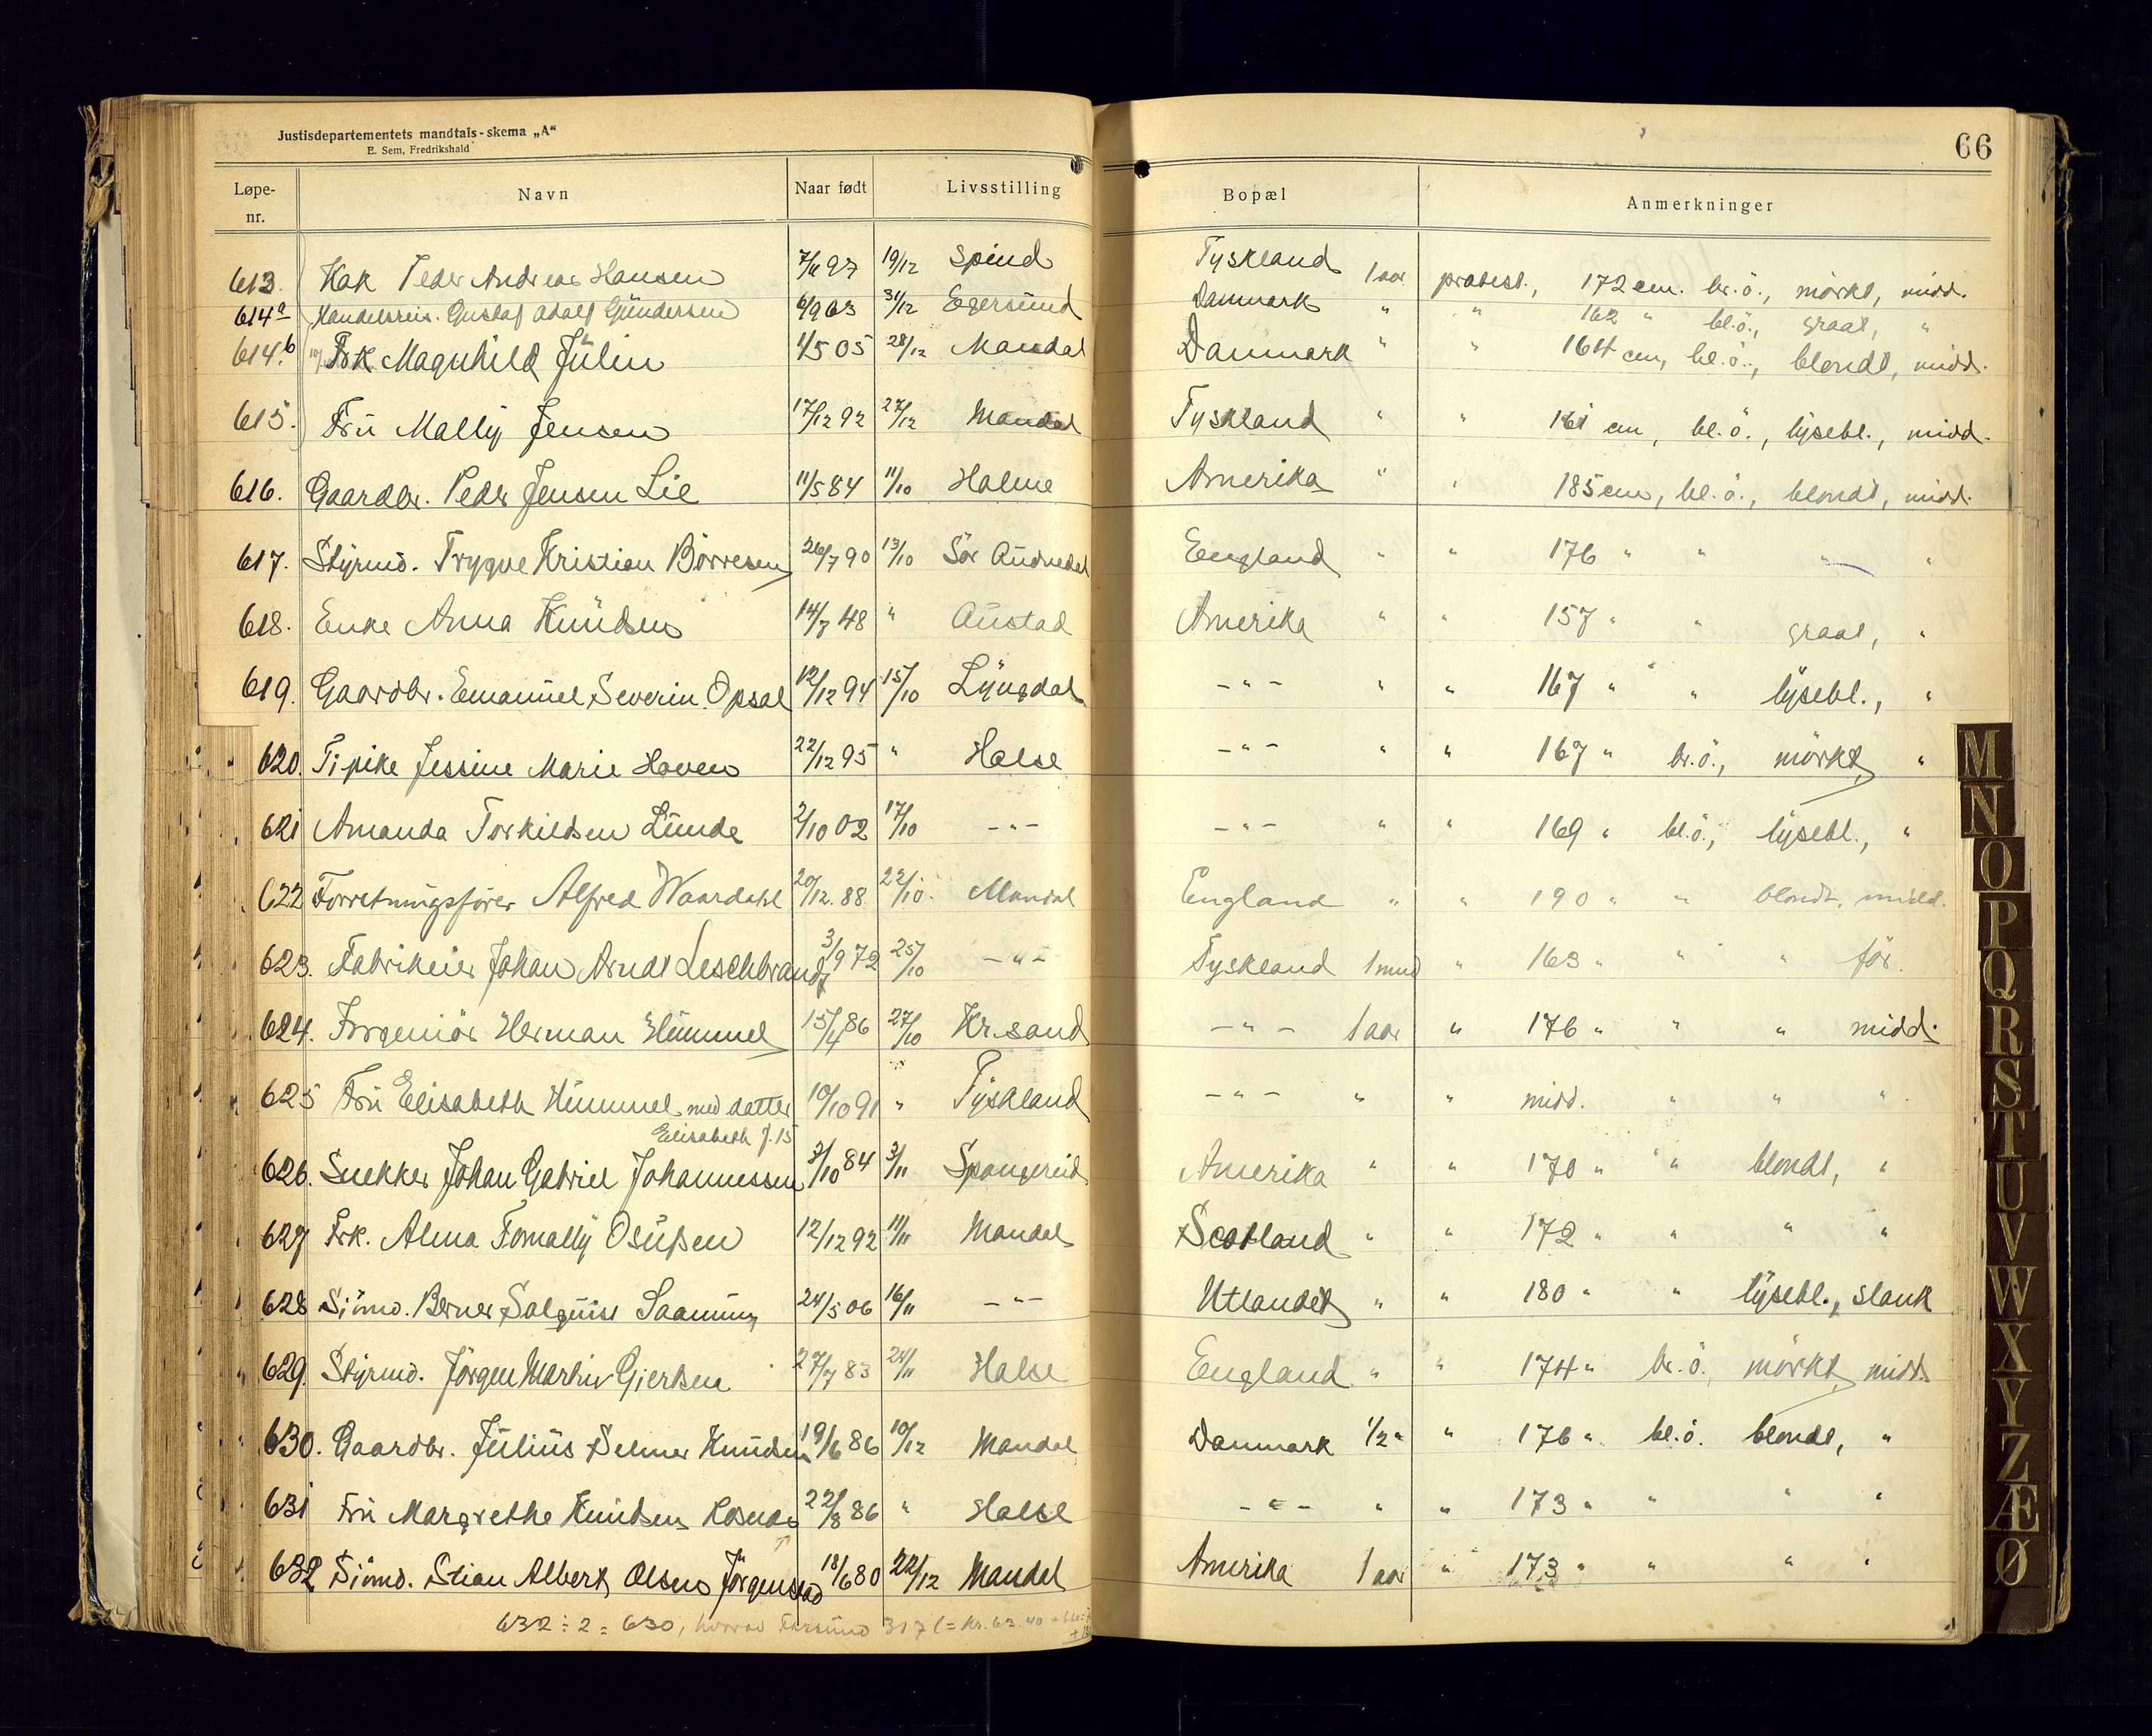 Justisdepartementets mandtals-skema „A“
E. Sem, Fredrikshald
66
Løpe-nr. Navn Naar født Livsstilling Bopæl Anmerkninger
613. Kok Peder Andreas Hansen 97 19/12 Spind Tyskland 1 aar protest., 172 cm. br.ö., mörkt, midd.
614a Handelsreis. Gustaf Adolf Gündersen 63 31/12 Egersünd Danmark " " 162 " bl.ö., graat, "
614.b Frk Magnhild Jülin 1/5 05 28/12 Mandal Danmark " " 164 cm, bl.ö., blondt, midd.
615. Frü Mally Jensen 17/12 92 27/12 Mandal Tyskland " " 161 cm, bl.ö., lysebl., midd.
616. Gaardbr. Peder Jensen Lie 11/5 84 11/10 Holme Amerika " " 185 cm, bl.ö., blondt, midd.
617. Styrmd. Trygve Kristian Börresen 26/7 90 13/10 Sör Aüdnedal England " " 176 " " " "
618. Enke Anna Knüdsen 14/7 48 " Aüstad Amerika " " 157 " " graat, "
619. Gaardbr. Emanüel Severin Opsal 12/12 94 15/10 Lyngdal -"- " " 167 " " lysebl., "
620. Tjpike Jessine Marie Haven 22/12 95 " Halse -"- " " 167 " br.ö., mörkt, "
621 Amanda Torkildsen Lünde 2/10 02 17/10 -"- -"- " " 169 " bl.ö., lysebl., "
622 Forretningsförer Alfred Waardahl 20/12. 88 22/10. Mandal England " " 190 " " blondt, midd.
623. Fabrikeier Johan Arndt Leschbrandt 3/9 72 25/10 -"- Tyskland 1 mnd " 163 " " " för.
624. Ingeniör Herman Hümmel 15/4 86 27/10 Kr.sand -"- 1 aar " 176 " " " midd.
625 Frü Elisabeth Hümmel med datter 10/10 91 " Tyskland -"- " " midd. " " "
Elisabeth f. 15
626. Snekker Johan Gabriel Johannessen 3/10 84 3/11 Spangereid Amerika " " 170 " " blondt, "
627 Frk. Alma Tomally Osüfsen 12/12 92 11/11 Mandal Scotland " " 172 " " " "
628 Sjömd. Berner Salqüist Saanüm 24/5 06 16/11 -"- Utlandet " " 180 " " lysebl., slank
629. Styrmd. Jörgen Martin Gjertsen 27/7 83 24/11 Halse England " " 174 " br.ö. mörkt, midd.
630. Gaardbr. Jülius Selmer Knüdsen 19/6 86 10/12 Mandal Danmark 1/2 " " 176 " bl.ö. blondt, "
631 Frü Margrethe Knüdsen 22/8 86 " Halse -"- " " 173 " " " "
632 Sjömd. Stian Albert Olsen Jörgenstad 18/6 80 22/12 Mandal Amerika 1 aar " 173 " " " "
632 ÷ 2 = 630, hvorav Farsünd 317 (= kr. 63.40
M
N
O
P
Q
R
S
T
U
V
W
X
Y
Z
Æ
Ø